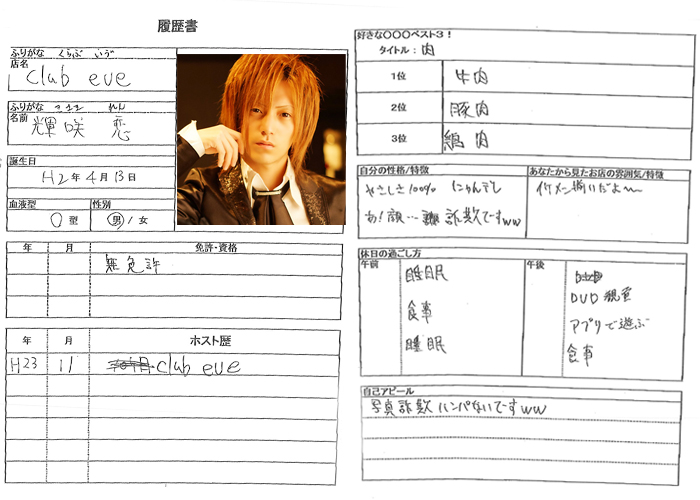 履歴書
ふりがな くらぶ いヴ
店名
club eve
ふりがな れん
名前
輝咲 恋
誕生日
H2年4月13日
血液型 性別
O型 男/女
年 月 免許・資格
無免許
年 月 ホスト歴
H23 11 club eve
好きな○○○ベスト3!
タイトル:肉
1位 牛肉
2位 豚肉
3位 鶏肉
自分の性格/特徴
やさしさ100%
あ!顔… 詐欺ですww
あなたから見たお店の雰囲気/特徴
イケメン揃いだよ〜
休日の過ごし方
午前
睡眠
食事
睡眠
午後
DVD観賞
アプリで遊ぶ
食事
自己アピール
写真詐欺ハンパないでーすww